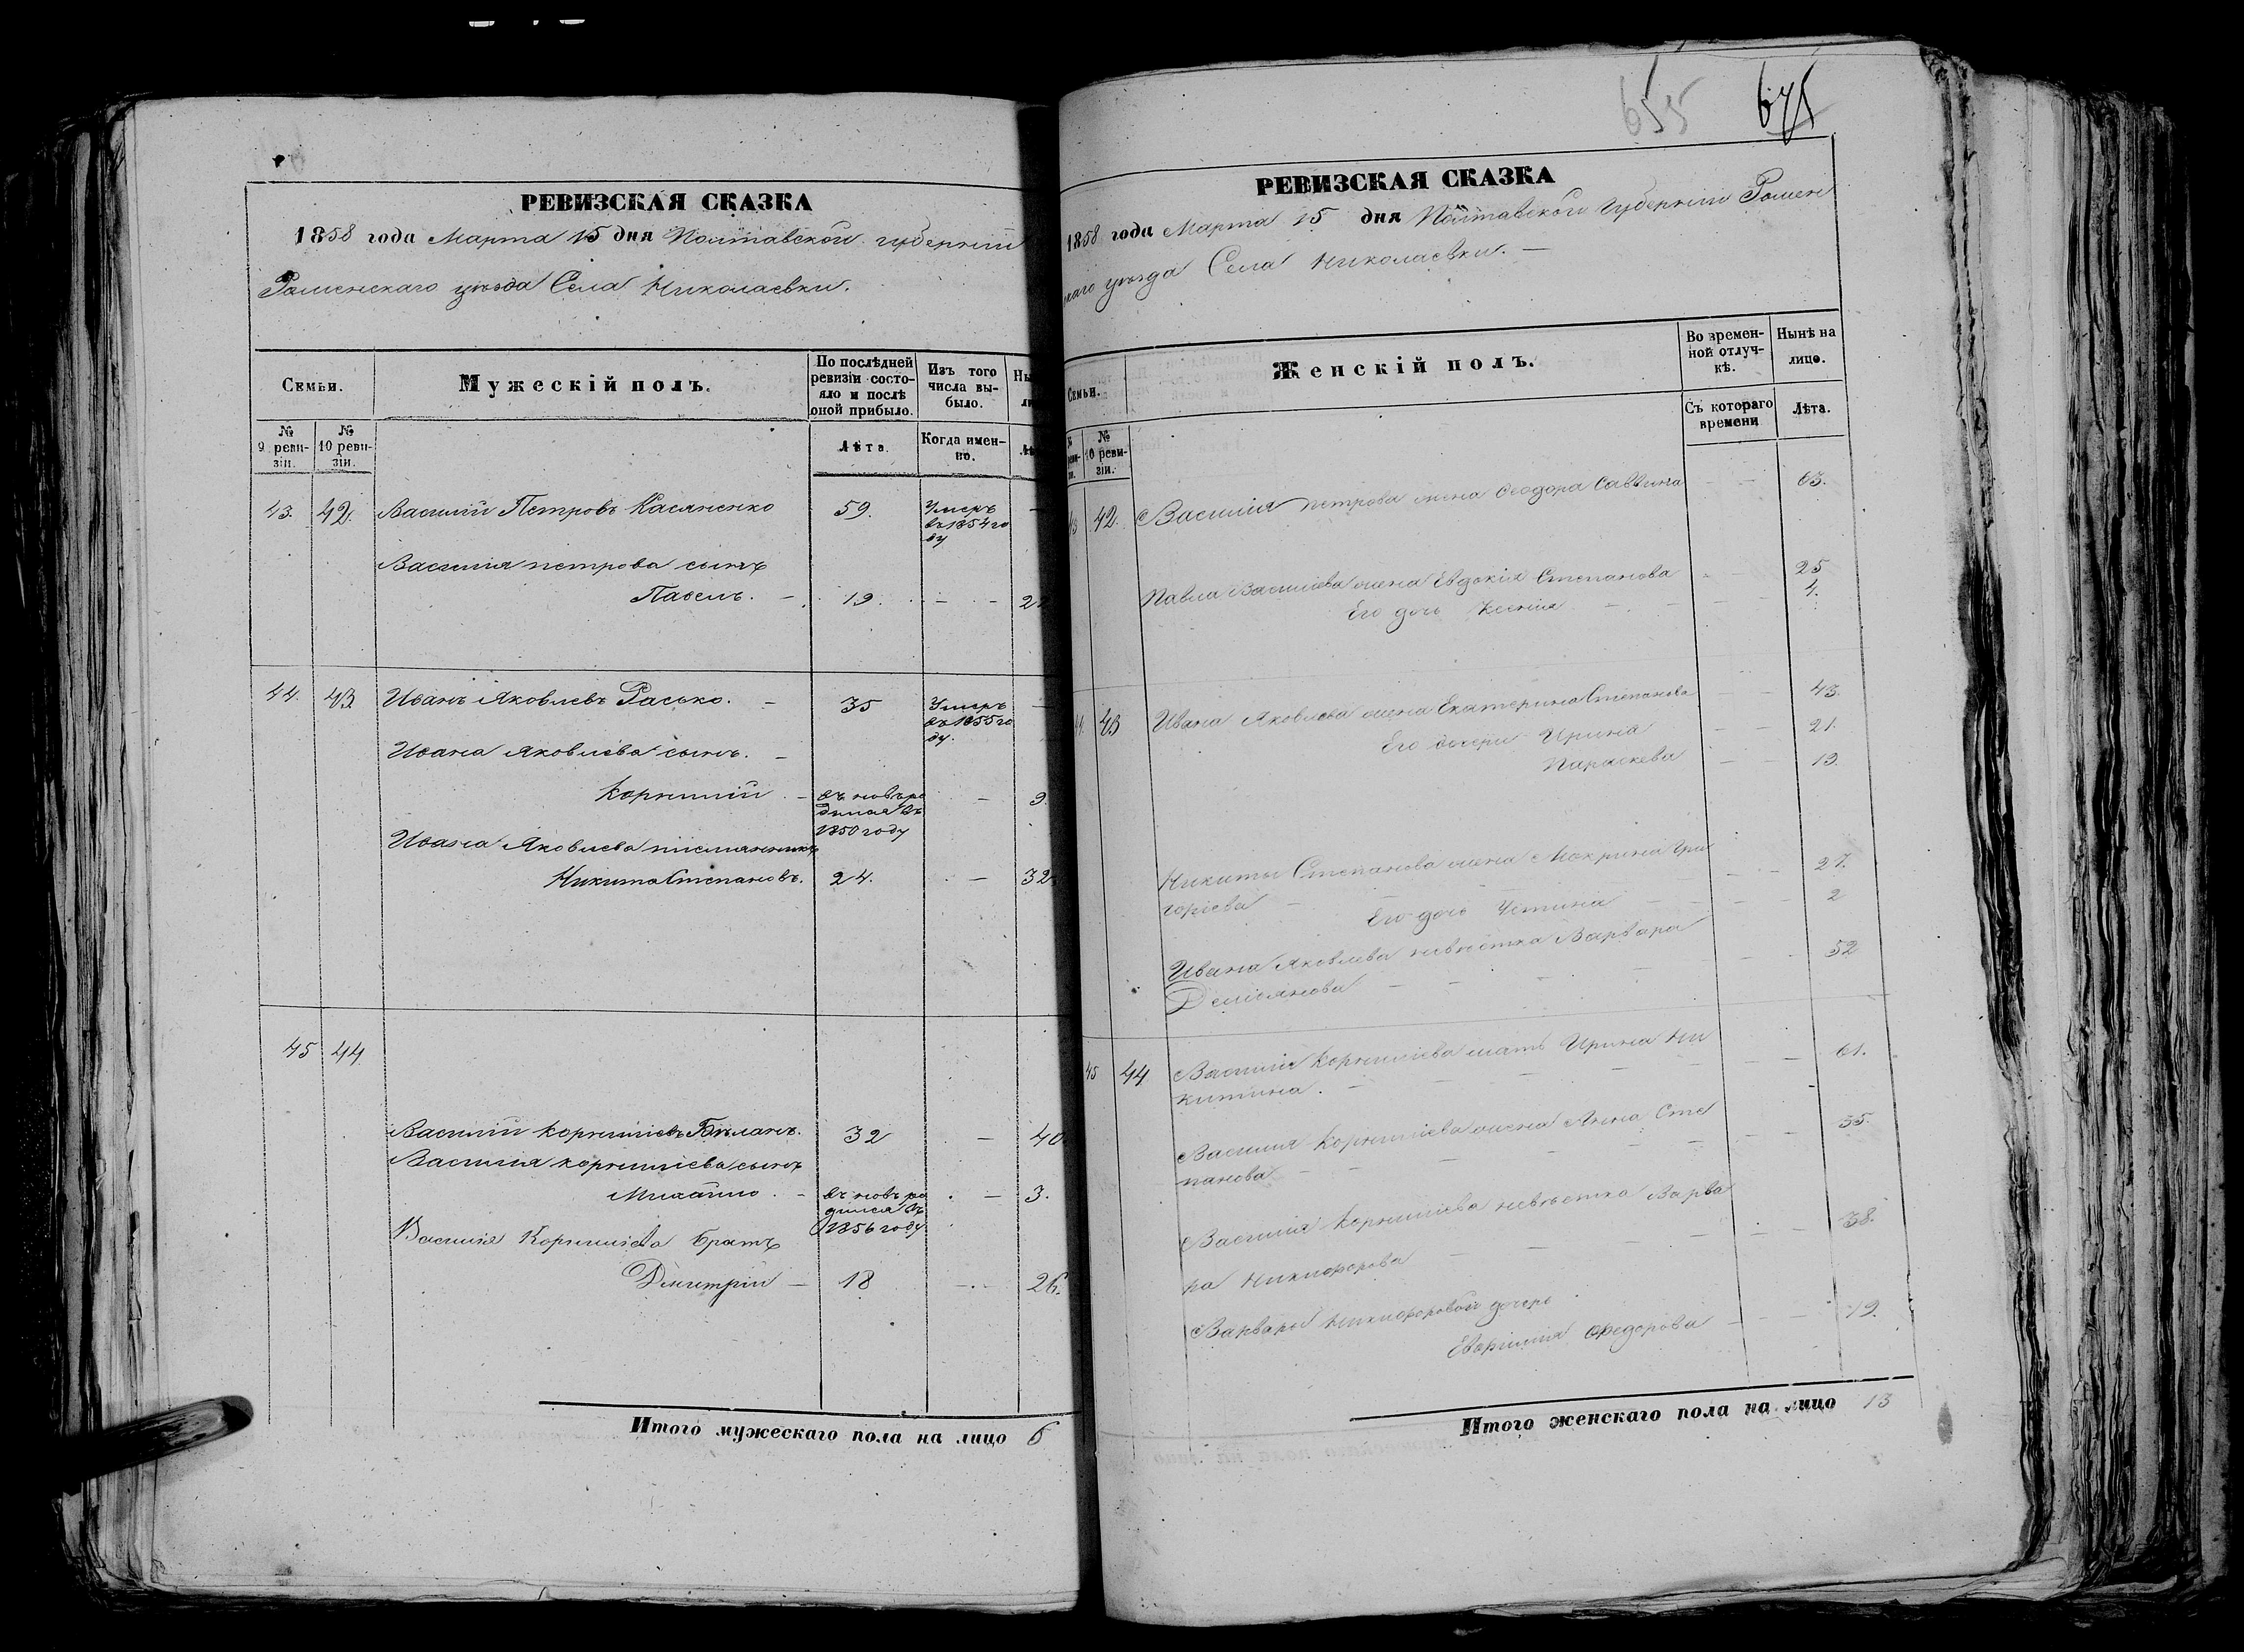 РЕВИЗСКАЯ СКАЗКА
1858 года Марта 15 дня Полтавской губерніи
Роменскаго уѣзда Села Николаевки.
Семьи.
Мужескій полъ.
По послѣдней ревизіи состояло и послѣ оной прибыло.
Изъ того числа выбыло.
№ 9 реви-зіи.
№ 10 реви-зіи.
Лѣта.
Когда имен-но.
43. 42. Василій Петровъ Касяненко 59. Умеръ
въ 1854 го
ду
Василія петрова сынъ
Павелъ. 19.
44. 43 Иванъ Яковлевъ Расько. 35 Умеръ
въ 1855 го
ду.
Ивана Яковлева сынъ.
Корнилій въ новъ ро 9
дился въ
1850 году
Ивана Яковлева племянникъ
Никита Степановъ. 24. 32
45 44
Василій Корниліевъ Бѣланъ. 32 40
Василія корниліева сынъ
Михайло въ новъ ро 3.
дился въ
1856 году
Василія Корниліева братъ
Дмитрій 18 26.
Итого мужескаго пола на лицо 6
655 671
РЕВИЗСКАЯ СКАЗКА
1858 года Марта 15 дня Полтавской Губерніи Ромен
скаго уѣзда Села Николаевки.
Семьи.
Женскій полъ.
Во времен-ной отлуч-кѣ.
Нынѣ на лицо.
№ 10 реви-зіи.
Съ котораго времени
Лѣта.
42. Василія петрова жена Феодора Саввина 63.
Павла Василіева жена Евдокія Степанова 25
Его дочь Ксенія 4.
43 Ивана Яковлева жена Екатерина Степанова 43.
Его дочери Ирина 21.
Параскева 19.
Никиты Степанова жена Мокрина Гри
горіева 27.
Его дочь Устина 2
Ивана Яковлева невѣстка Варвара
Деміянова 52
45 44 Василія Корниліева мать Ирина Ни
китина. 61.
Василія Корниліева жена Анна Сте
панова 35.
Василія Корниліева невѣстка Варва
ра Никифорова 38.
Варвары Никифоровой дочерь
Евфимія Федорова 19.
Итого женскаго пола на лицо 13